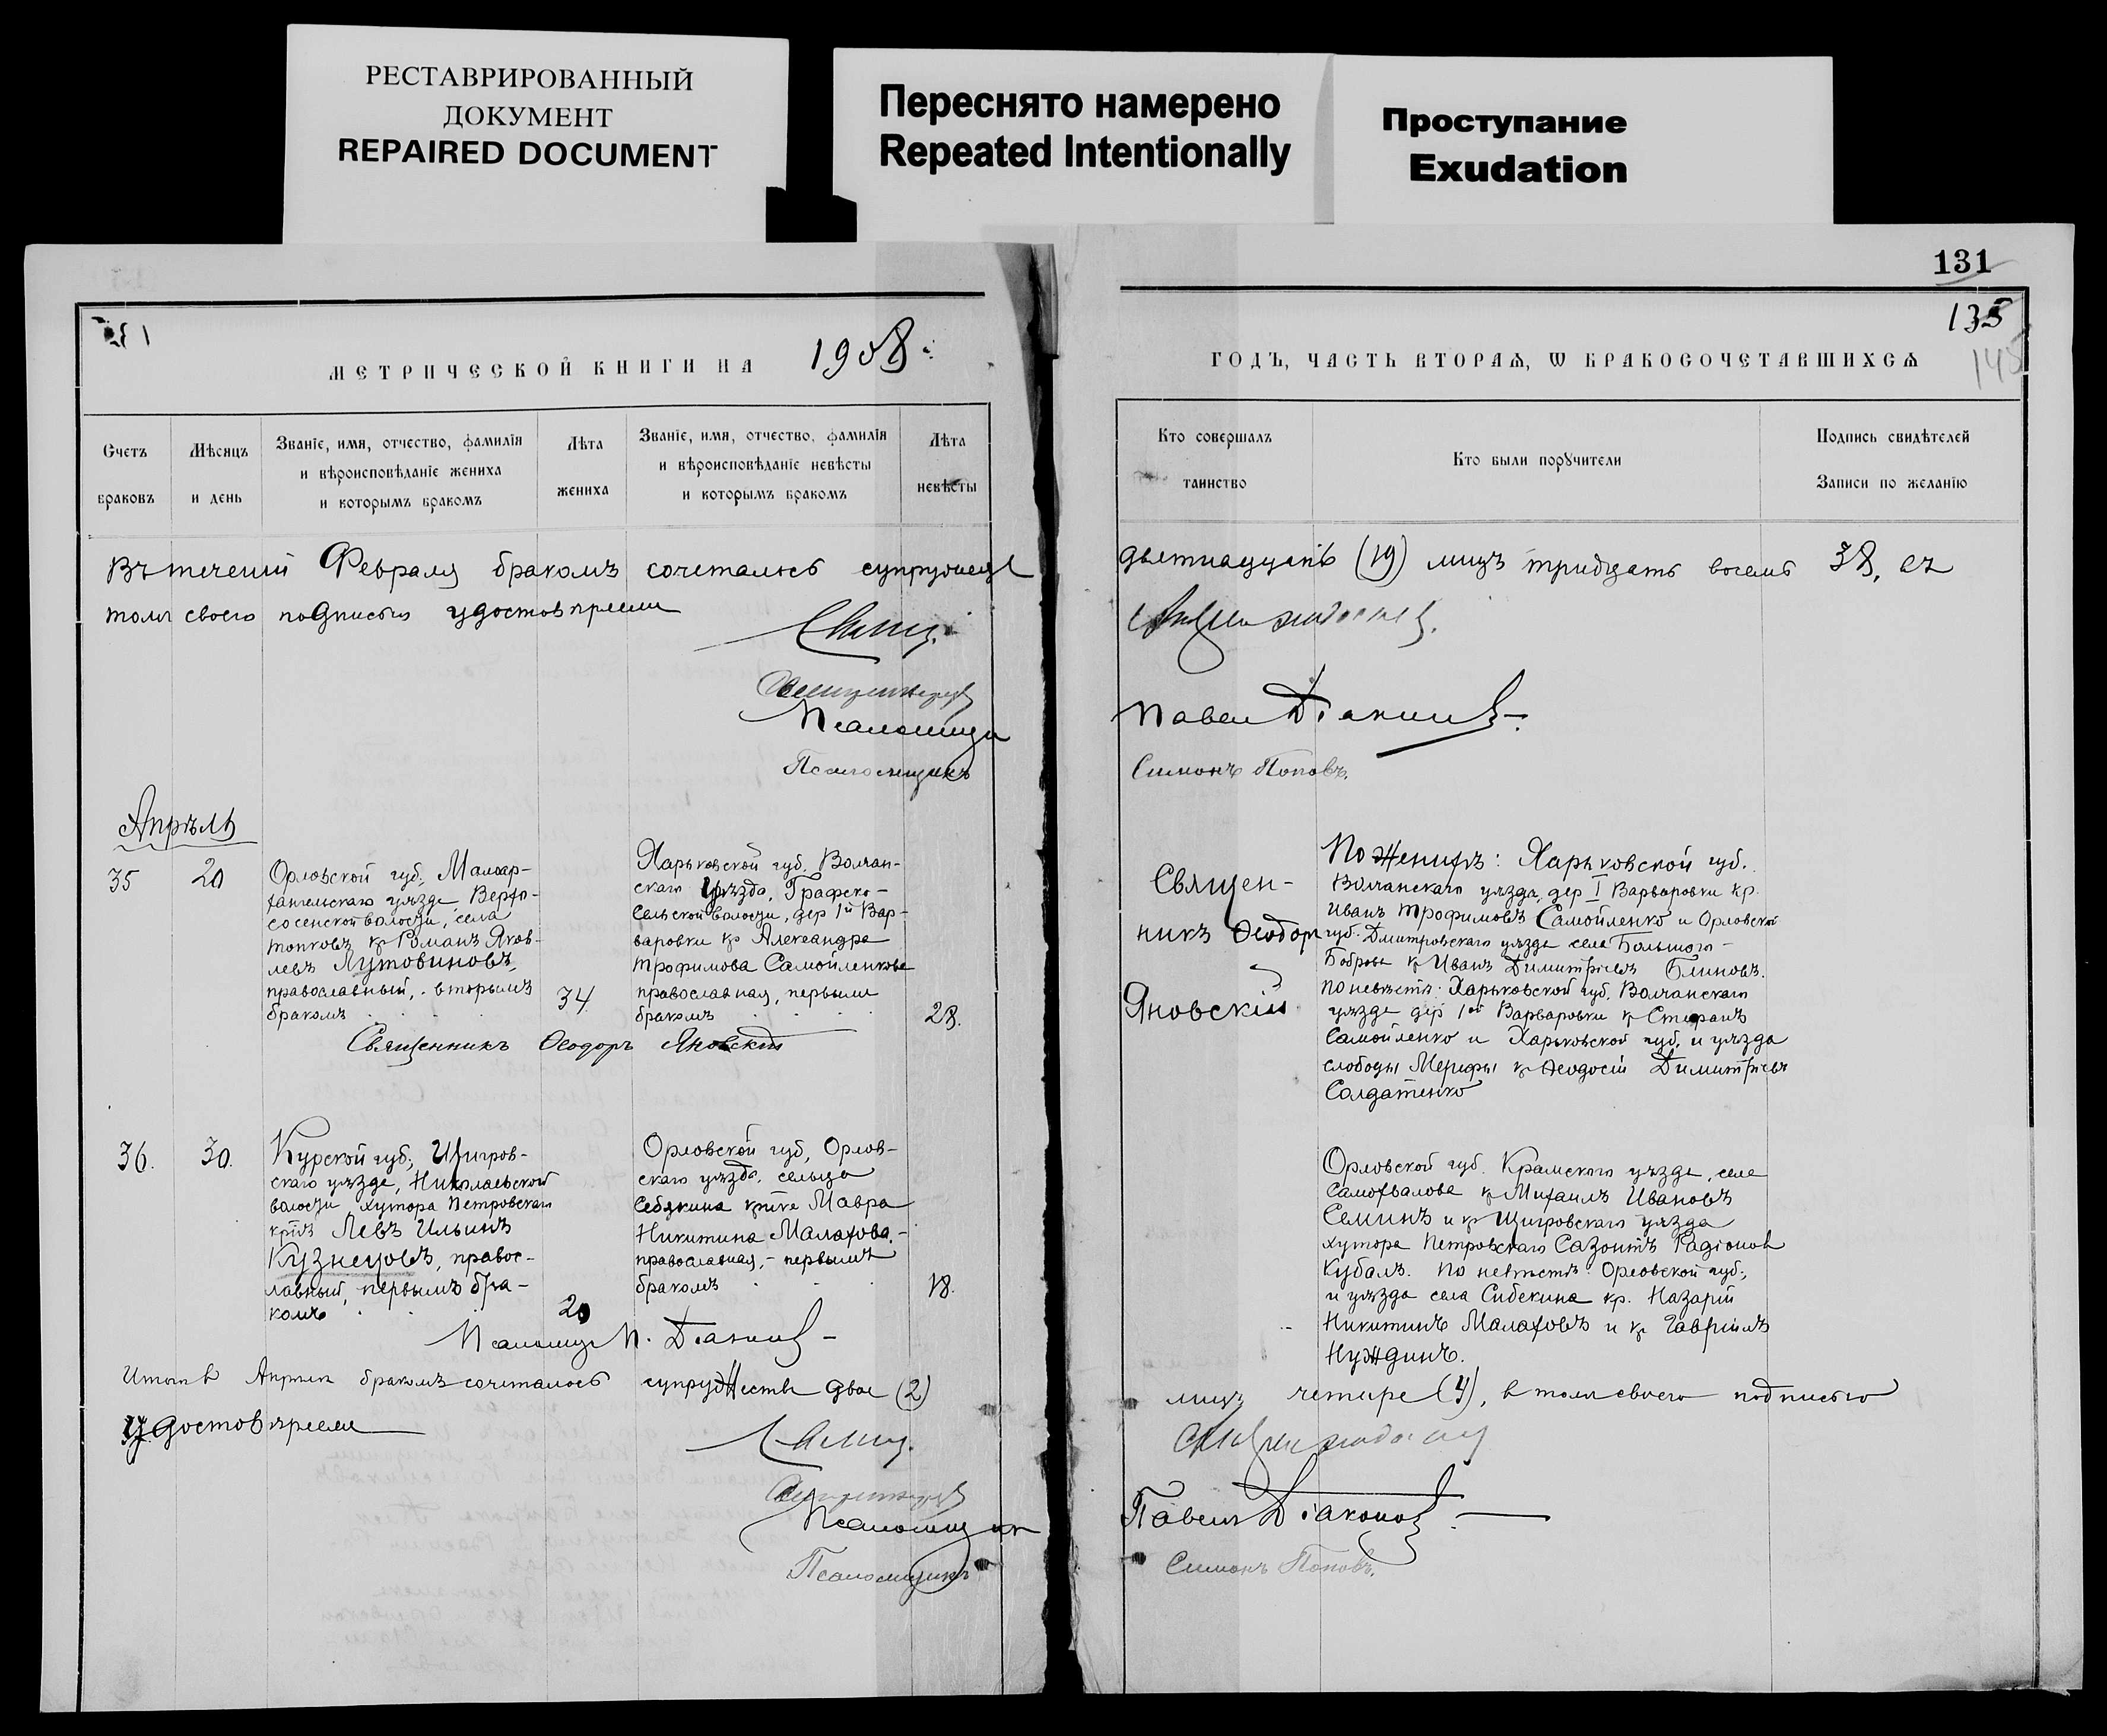 РЕСТАВРИРОВАННЫЙ
ДОКУМЕНТ
REPAIRED DOCUMENT
Переснято намерено
Repeated Intentionally
Проступание
Exudation
МЕТРИЧЕСКОЙ КНИГИ НА 1908
Счетъ браковъ
Мѣсяцъ и день
Званіе, имя, отчество, фамилія
и вѣроисповѣданіе жениха
и которымъ бракомъ
Лѣта жениха
Званіе, имя, отчество, фамилія
и вѣроисповѣданіе невѣсты
и которымъ бракомъ
Лѣта невѣсты
Въ теченіи Февраля бракомъ сочеталось
томъ своею подписью удостовѣряемъ
Псаломщикъ
Псаломщикъ
Апрѣль
35
20
Орловской губ., Малоар-
хангельскаго уѣзда, Верхо-
сосенской волости, села
Топковъ кр Романъ Яков-
левъ Лутовиновъ,
православный, вторымъ
бракомъ
34
Харьковской губ. Волчан-
скаго уѣзда, Графско-
сельской волости, дер 1й Вар-
варовки кр Александра
Трофимова Самойленкова
православная, первымъ
бракомъ
28.
Священникъ Ѳеодоръ Яновскій
36.
30.
Курской губ., Щигров-
скаго уѣзда, Николаевской
волости, хутора Петровскаго
Левъ Ильинъ
Кузнецовъ, правос-
лавный, первымъ бра-
комъ
20
Орловской губ, Орлов-
скаго уѣзда, сельца
Себякина Мавра
Никитина Малахова,
православная, - первымъ
бракомъ
18.
Псаломщ П. Діаконовъ
Итого въ Апрѣлѣ бракомъ сочеталось супружества двое (2)
удостовѣряемъ
Псаломщик
Псаломщикъ
131
135
ГОДЪ, ЧАСТЬ ВТОРАѦ, Ѡ БРАКОСОЧЕТАВШИХСѦ
145
Кто совершалъ
таинство
Кто были порꙋчители
Подпись свидѣтелей
Записи по желанію
девятнадцать (19) лицъ тридцать восемь 38, въ
Павелъ Діаконовъ
Симонъ Поповъ.
Священ-
никъ Ѳеодоръ
Яновскій
По женихѣ: Харьковской губ.
Волчанскаго уѣзда, дер I Варваровки кр.
Иванъ Трофимовъ Самойленко и Орловской
губ. Дмитровскаго уѣзда села Большого-
Боброва кр Иванъ Димитріевъ Блиновъ.
по невѣстѣ: Харьковской губ. Волчанскаго
уѣзда дер 1ой Варваровки кр Стефанъ
Самойленко и Харьковской губ. и уѣзда
слободы Мерефы кр Ѳеодосій Димитріевъ
Солдатенко
Орловской губ. Кромского уѣзда, села
Самохвалова кр Михаилъ Ивановъ
Семинъ и кр Щигровскаго уѣзда
хутора Петровскаго Сазонтъ Радіоновъ
Кубалъ. По невѣстѣ: Орловской губ.,
и уѣзда села Сибекина кр. Назарій
Никитинъ Малаховъ и кр Гавріилъ
Нуждинъ.
лицъ четыре (4), въ томъ своею подписью
Павелъ Діаконовъ
Симонъ Поповъ.